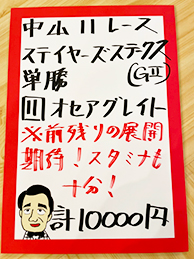 中山11レース
ステイヤーズステークス
単勝 (GⅡ)
⑪ オセアグレイト
※前残りの展開
期待！スタミナも
十分！
計10000円